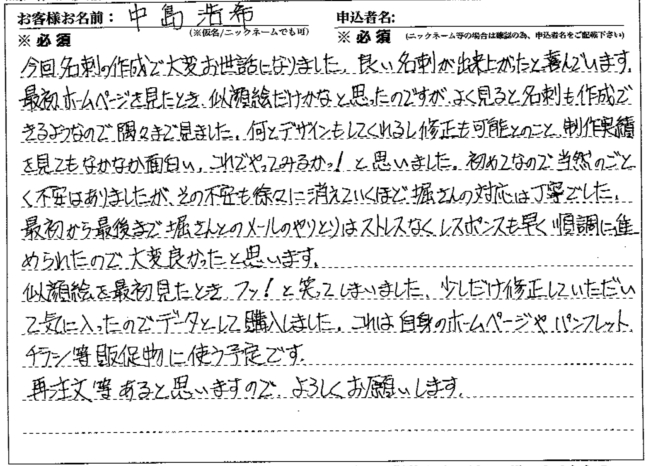 お客様お名前： 中島浩希 申込者名：
※必須 (※仮名/ニックネームでも可) ※必須 (ニックネーム等の場合は確認の為、申込者名をご記載下さい)
今回名刺の作成で大変お世話になりました。良い名刺が出来上がったと喜んでいます。
最初ホームページを見たとき、似顔絵だけかなと思ったのですが、よく見ると名刺も作成で
きるようなので隅々まで見ました。何とデザインもしてくれるし修正も可能とのこと、制作実績
を見てもなかなか面白い、これでやってみるかっ！と思いました。初めてなので当然のごと
く不安はありましたが、その不安も徐々に消えていくほど堀さんの対応は丁寧でした。
最初から最後まで堀さんとのメールのやりとりはストレスなくレスポンスも早く順調に進
められたので大変良かったと思います。
似顔絵を最初見たとき フッ！と笑ってしまいました。少しだけ修正していただい
て気に入ったのでデータとして購入しました。これは自身のホームページやパンフレット、
チラシ等販促物に使う予定です。
再注文等あると思いますので、よろしくお願いします。